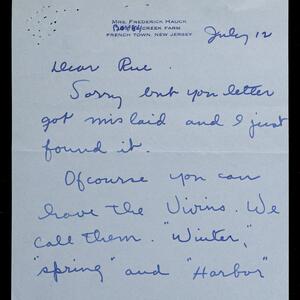 MRS. FREDERICK HAUCK
CREEK FARM
FRENCH TOWN, NEW JERSEY
July 12
Dear Rue.
Sorry but you letter
got mislaid and I just
found it.
Ofcourse you can
have the Vivins. We
call them. "Winter,"
"spring" and "Harbor"